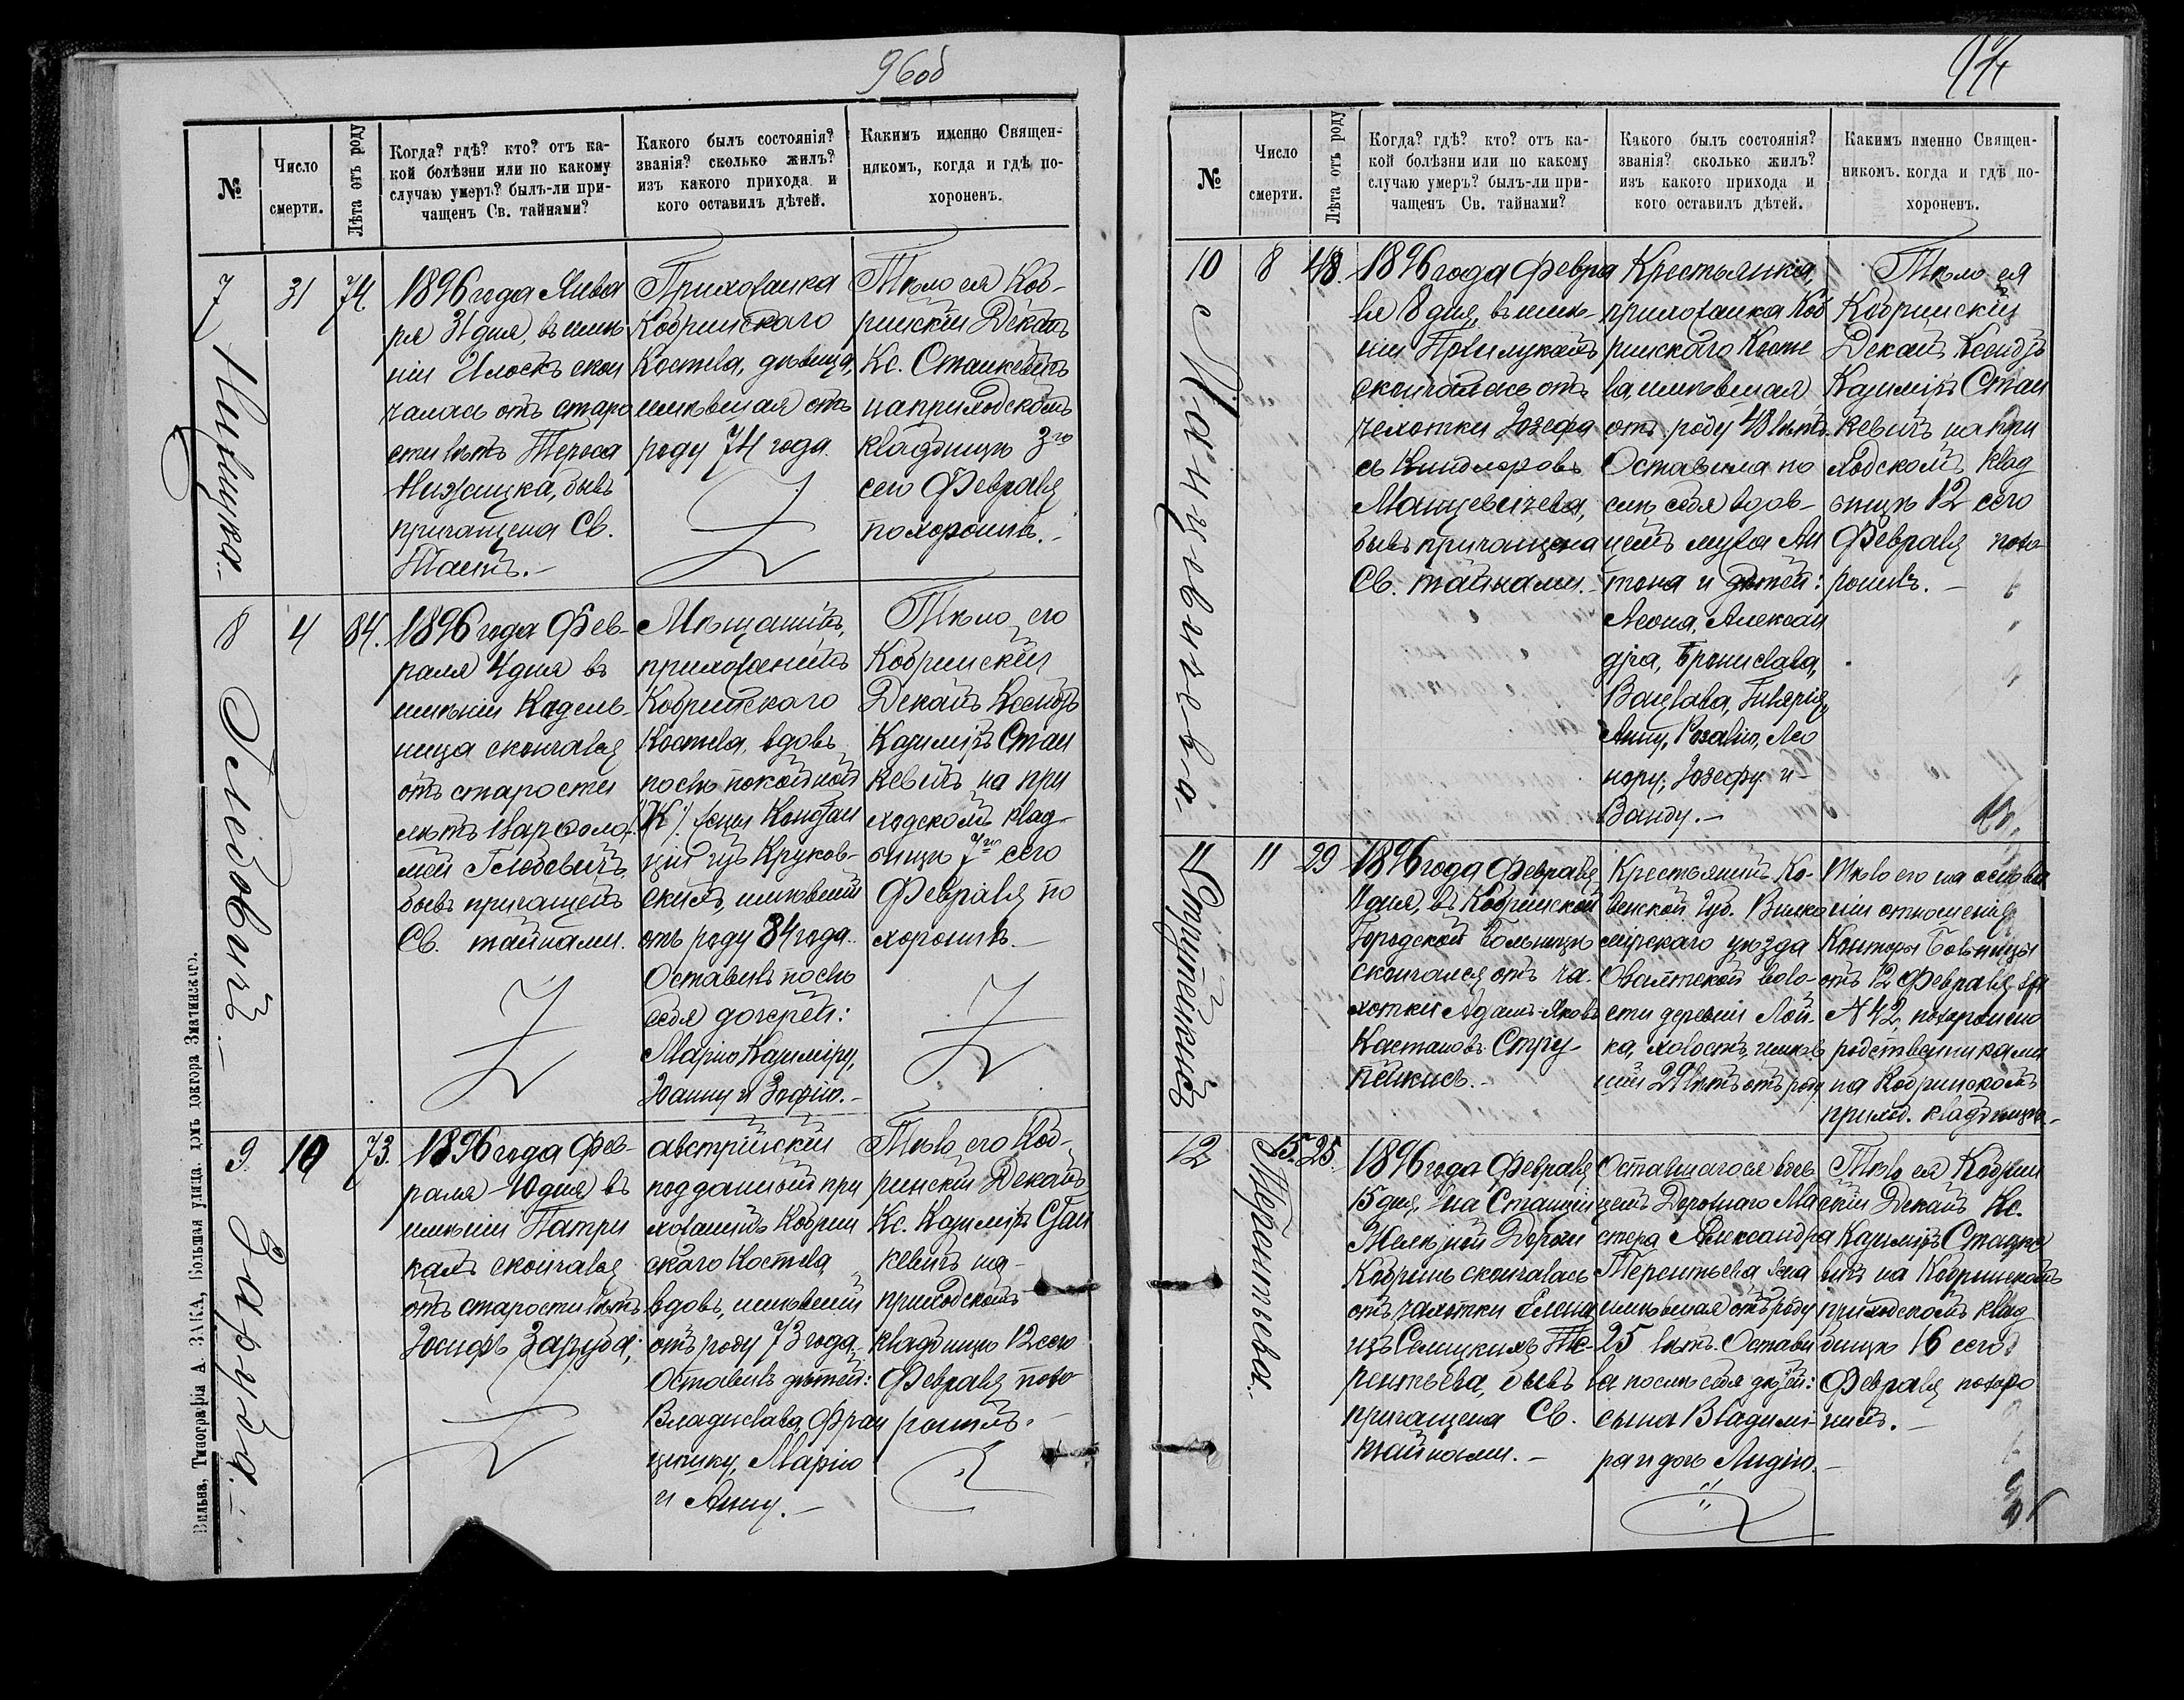 96об
№
Число
смерти.
Лѣта отъ роду
Когда? гдѣ? кто? отъ ка-
кой болѣзни или по какому
случаю умеръ? былъ-ли при-
чащенъ Св. тайнами?
Какого былъ состоянія?
званія? сколько жилъ?
изъ какого прихода и
кого оставилъ дѣтей.
Какимъ именно Священ-
никомъ, когда и гдѣ по-
хороненъ.
7
31
74.
1896 года Янва
ря 31 дня, въ имѣ
ніи Илоскъ скон
чалась отъ старо
сти лѣтъ Тереса
бывъ
причащена Св.
Таинъ.-
Прихожанка
Кобринскаго
Костела, дѣвица,
имѣвшая отъ
роду 74 года.
Тѣло ея Коб-
ринскій Деканъ
Кс. Станкевичъ
на приходскомъ
кладбищѣ 3го
сего Февраля
похоронилъ.-
8
Глѣбовичъ.-
4
84.
1896 года Фев-
раля 4 дня въ
имѣніи
нища скончался
отъ старости
лѣтъ Варѳоло-
мей Глѣбовичъ,
бывъ причащенъ
Св. тайнами.
Мѣщанинъ,
прихожанинъ
Кобринскаго
Костела, вдовъ
послѣ покойной
жены Констан
ціи изъ Круков-
скихъ, имѣвшій
отъ роду 84 года.
Оставилъ послѣ
себя дочерей:
Марію Казиміру,
Іоанну и Зофію.-
Тѣло его
Кобринскій
Деканъ Ксендзъ
Казиміръ Стан
кевичъ на при
ходскомъ клад-
бищѣ 7го сего
Февраля по
хоронилъ.-
9
Заруба.-
10
73.
1896 года Фев-
раля 10 дня въ
имѣніи Патри
кахъ скончался
отъ старости лѣтъ
Іосифъ Заруба;
австрійскій
подданный при
хожанинъ Кобрин
скаго Костела,
вдовъ, имѣвшій
отъ роду 73 года.
Оставилъ дѣтей:
Владислава, Фран
цишку, Марію
и Анну.-
Тѣло его Коб-
ринскій Деканъ
Кс. Казиміръ Стан
кевичъ на-
приходскомъ
кладбищѣ 12 сего
Февраля похо
ронилъ.-
Вильна, Типографія А. ЗАКА, Большая улица. домъ доктора
97
№
Число
смерти.
Лѣта отъ роду
Когда? гдѣ? кто? отъ ка-
кой болѣзни или по какому
случаю умеръ? былъ-ли при-
чащенъ Св. тайнами?
Какого былъ состоянія?
званія? сколько жилъ?
изъ какого прихода и
кого оставилъ дѣтей.
Какимъ именно Священ-
никомъ. когда и гдѣ по-
хороненъ.
10
Манцевичева.
8
48.
1896 года Февра
ля 8 дня, въ имѣ-
ніи Прилукахъ
скончалась отъ
чехотки Іозефа
съ
Манцевичева,
бывъ причащена
Св. тайнами.-
Крестьянка,
прихожанка Коб
ринскаго Косте
ла, имѣвшая
отъ роду 48 лѣтъ.
Оставила по
слѣ себя вдов-
цемъ мужа Ан
тона и дѣтей:
Леона, Александра,
дра, Бронислава,
Вацлава,
Анну, Розалію, Лео
нору, Іозефу и-
Ванду.-
Тѣло ея
Кобринскій
Деканъ Ксендзъ
Казиміръ Стан
кевичъ на при
ходскомъ клад
бищѣ 12 сего
Февраля похо-
ронилъ.-
11
Струпейкисъ
11
29
1896 года Февраля
11 дня, въ Кобринской
Городской больницѣ
скончался отъ ча-
хотки Адамъ Яковъ
Струп-
пейкисъ.-
Крестьянинъ Ко-
венской губ. Вилко
мірскаго уѣзда
Овантской воло-
сти деревни Лой-
ка, холостъ, имѣв
шій 29 лѣтъ отъ роду
Тѣло его на основа
ніи отношенія
Конторы Больницы
отъ 12 Февраля за
№ 42, похоронено
родственниками
на Кобринскомъ
приход. кладбищѣ.-
12
Терентьева.
15.
25.
1896 года Февраля
15 дня, на Станціи
Желѣзной Дороги
Кобринъ скончалась
отъ чахотки Елена
изъ Селицкихъ Те-
рентьева, бывъ
причащена Св.
тайнами.-
Оставшагося вдов
цемъ Дорожнаго Ма
стера Александра
Терентьева жена
имѣвшая отъ роду
25 лѣтъ. Остави
ла послѣ себя дѣтей:
сына Владимі-
ра и дочь Лидію.-
Тѣло ея Кобрин
скій Деканъ Кс.
Казиміръ Станке
вичъ на Кобринскомъ
приходскомъ клад
бищѣ 16 сего
Февраля похоро
нилъ.-